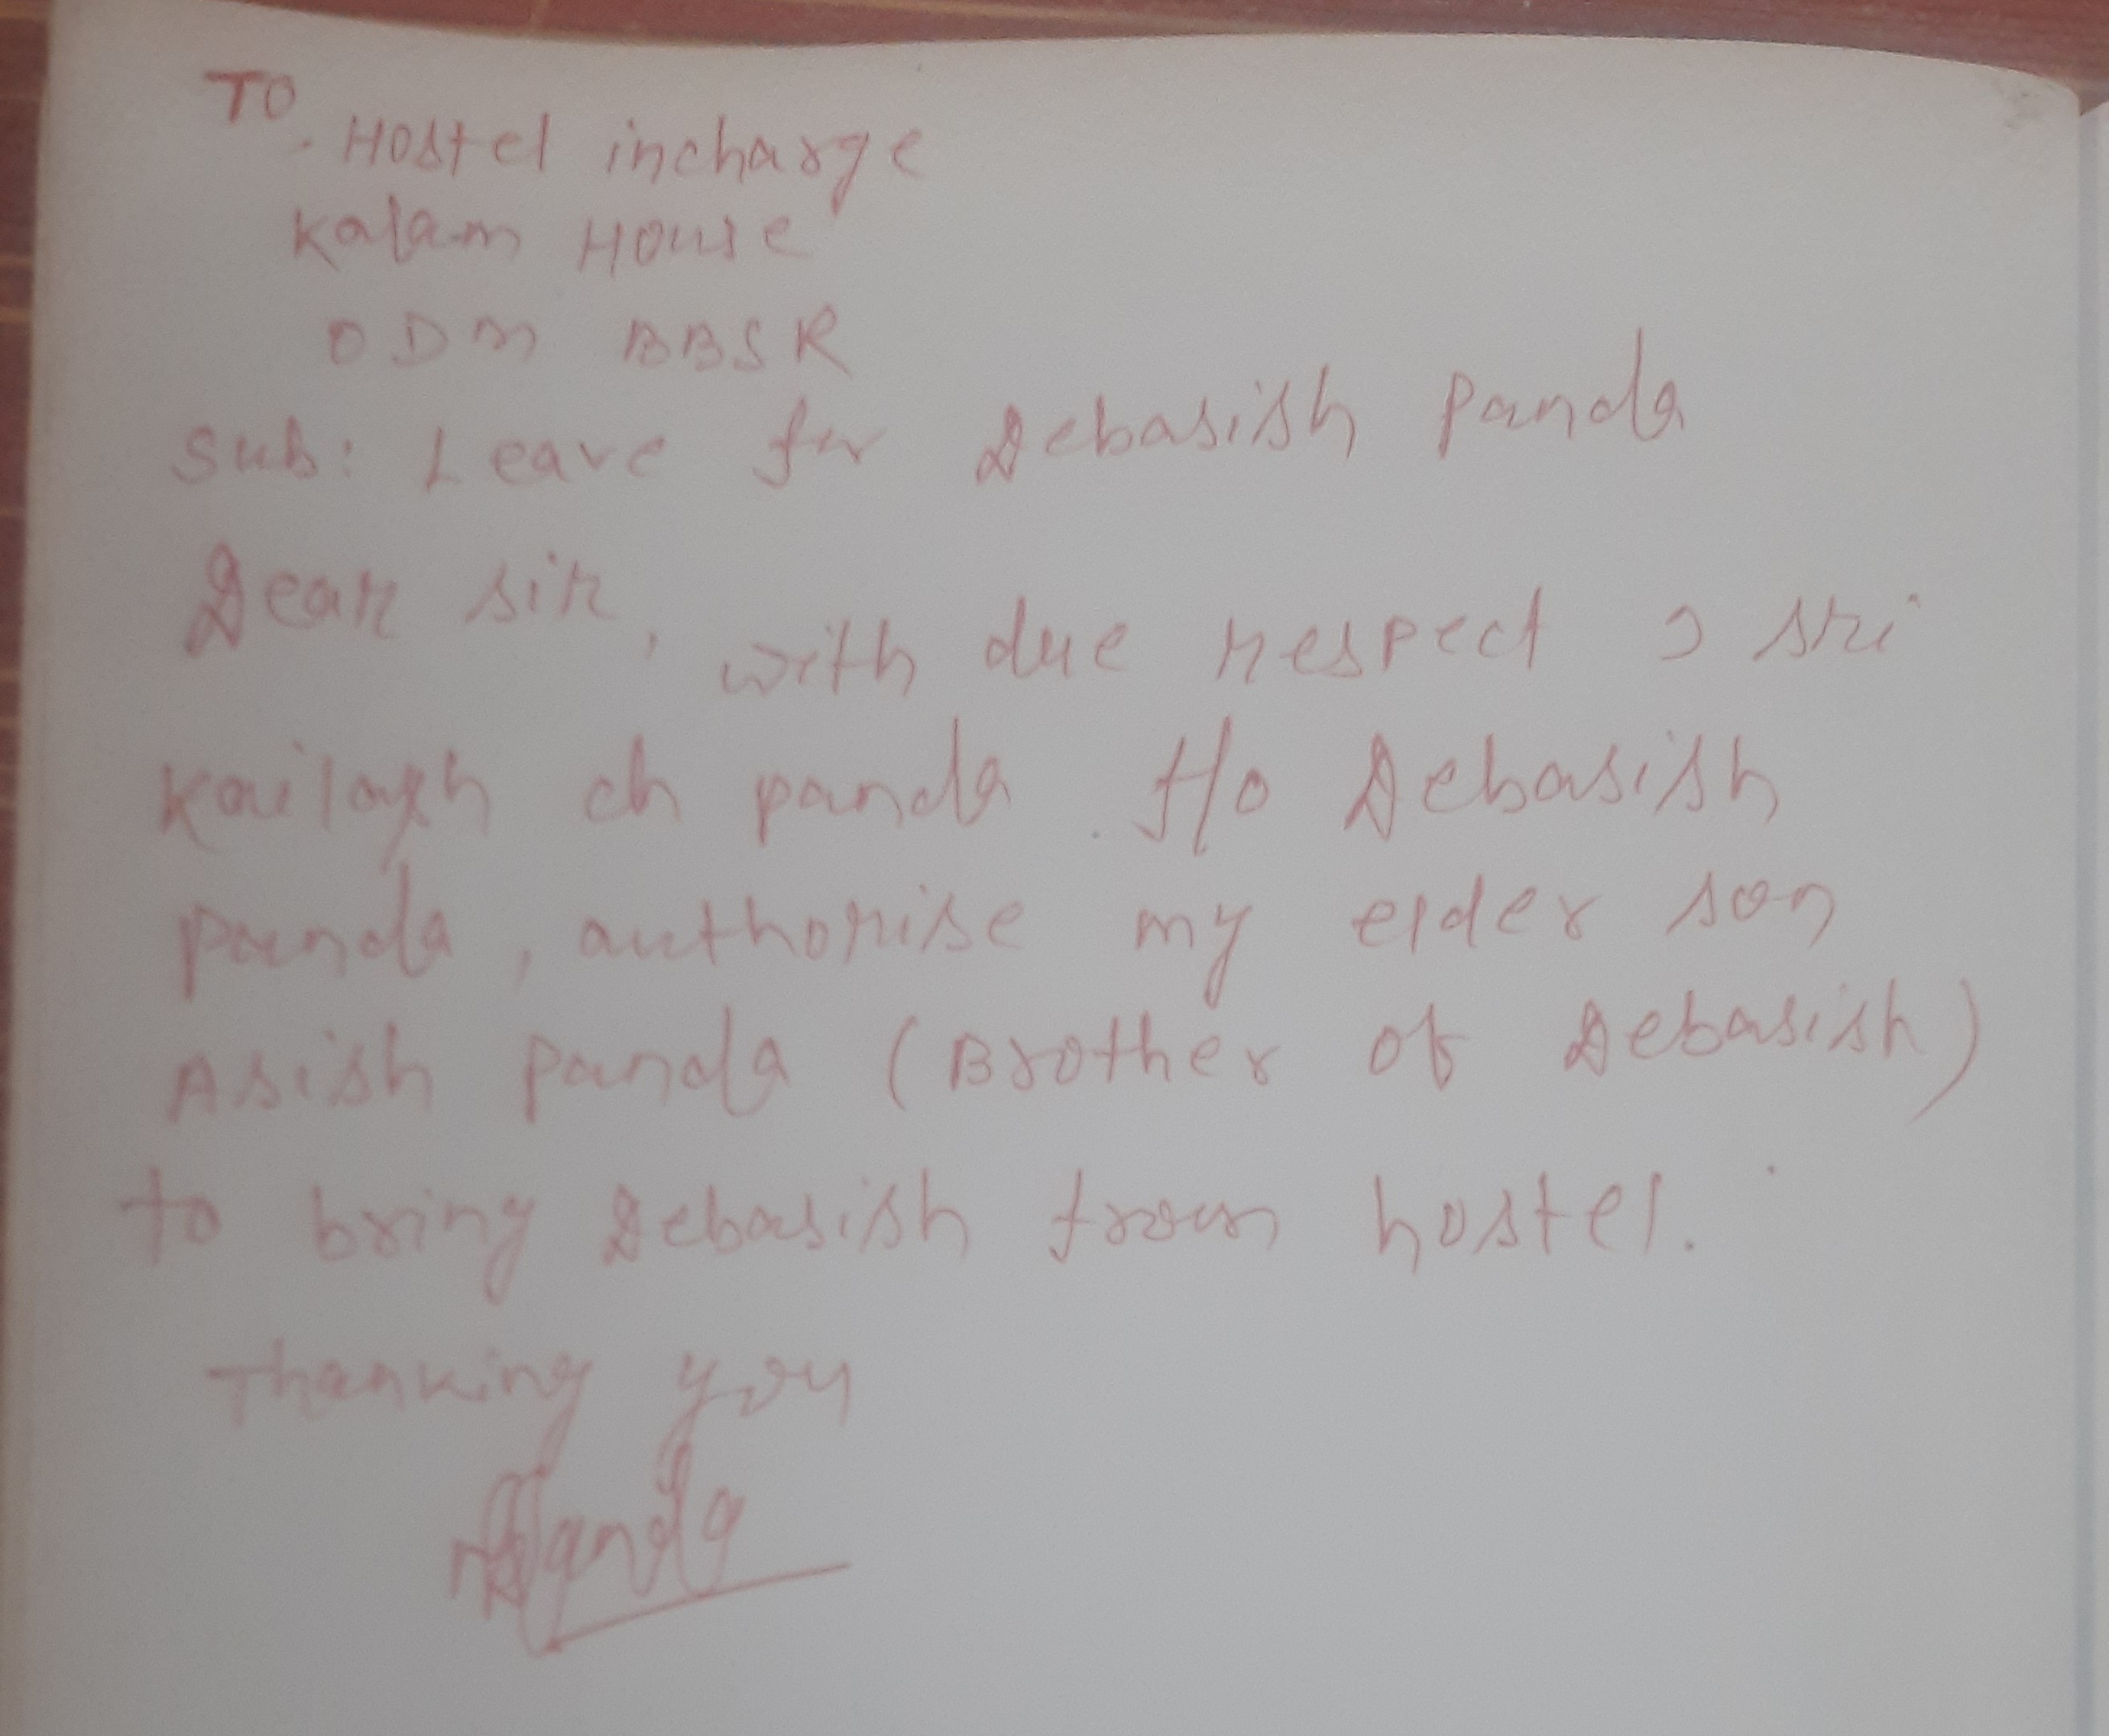 TO,
Hostel incharge
Kalam House
ODM BBSR
Sub: Leave for Debasish Panda
Dear sir,
with due respect I sri
Kailash ch panda f/o Debasish
Panda, authorise my elder son
Asish Panda (Brother of Debasish)
to bring Debasish from hostel.
Thanking you
Panda